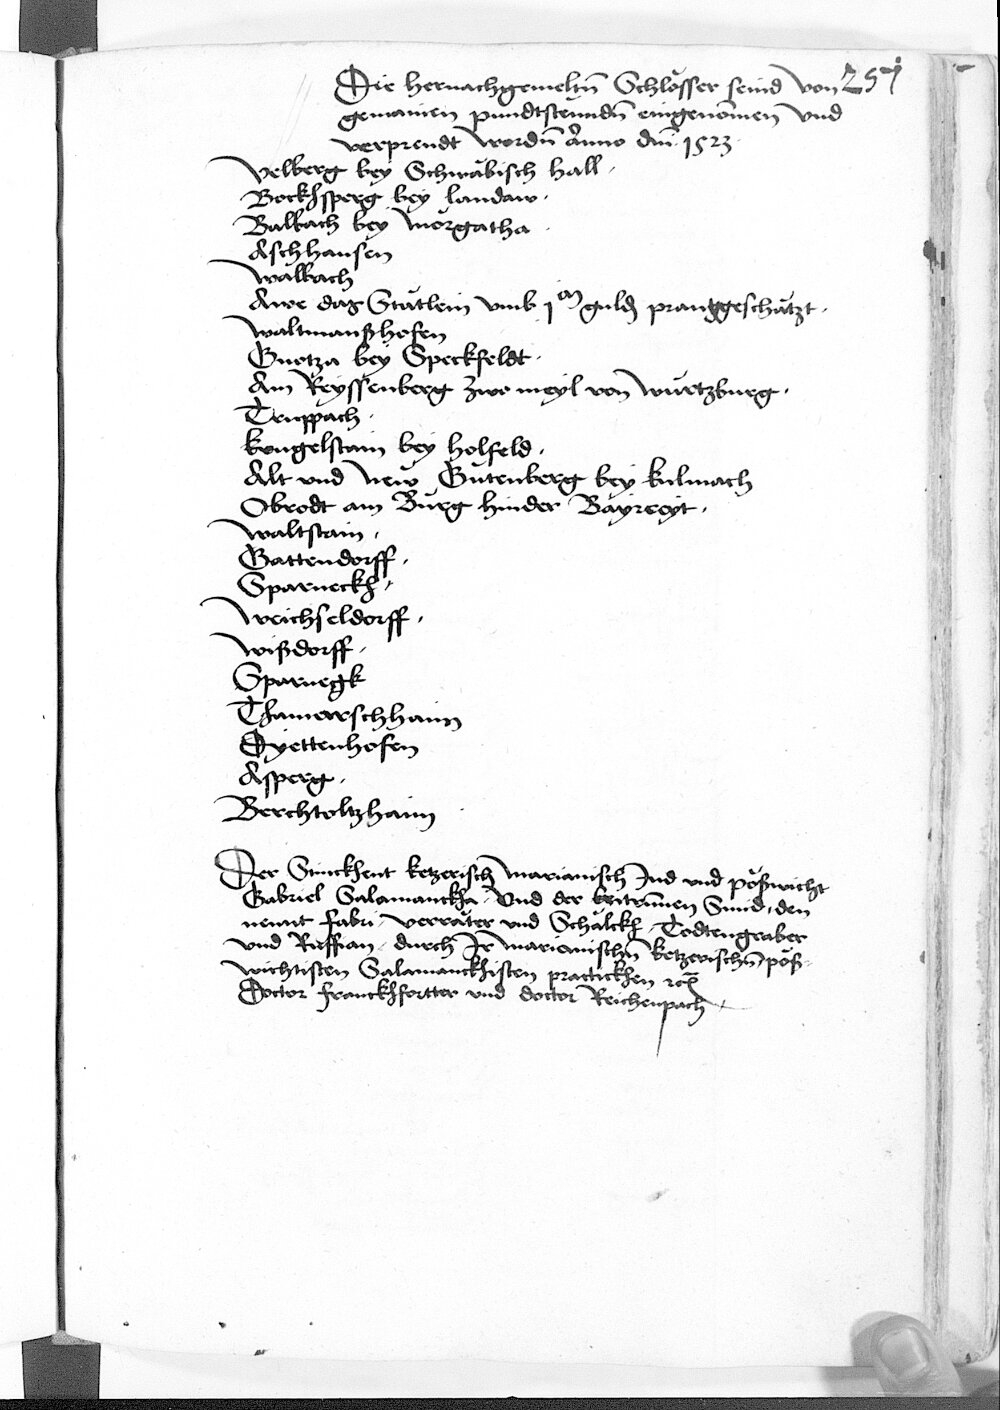 257
Die hernachgemeltn̄ Schlösser seind von
gemainen pundtstenndn̄ eingenōmen und
verprendt wordn̄ Anno dnī 1523
Velberg bey Schwäbisch hall.
Bockhsperg bey landaw.
Balbach bey Mergatha.
Aschhausen
Walbach
Awe das Stätlein umb 1 M guldn̄ prantgeschätzt.
Waltmanßhofen
Gnotza bey Speckfeldt.
Am Reyssenberg zwo meyl von Würtzburg.
Truppach.
kungelstain bey holfeld.
Alt vnd New Gutenberg bey kulmach
Obrodt am Burg hinder Bayreyt.
Waltstain.
Gattendorff.
Sparneckh.
Weichseldorff.
Wißdorff.
Sparnegk
Thamerschhaim
Dyettenhofen
Asperg.
Berchtoltzhaim
Der Stinckhent ketzerisch Marianisch Jud vnd pößwicht
Gabriel Salamanckha. Vnd der Smid, den
nennt fabri. verräter vnd Schälckh. Todtengraber
vnd Ruffian. durch Ir Marianischn̄ ketzerischn̄ pöß
wichtisten Salamanckhisten practickhen
Doctor franckhfortter vnd doctor Reichenpach